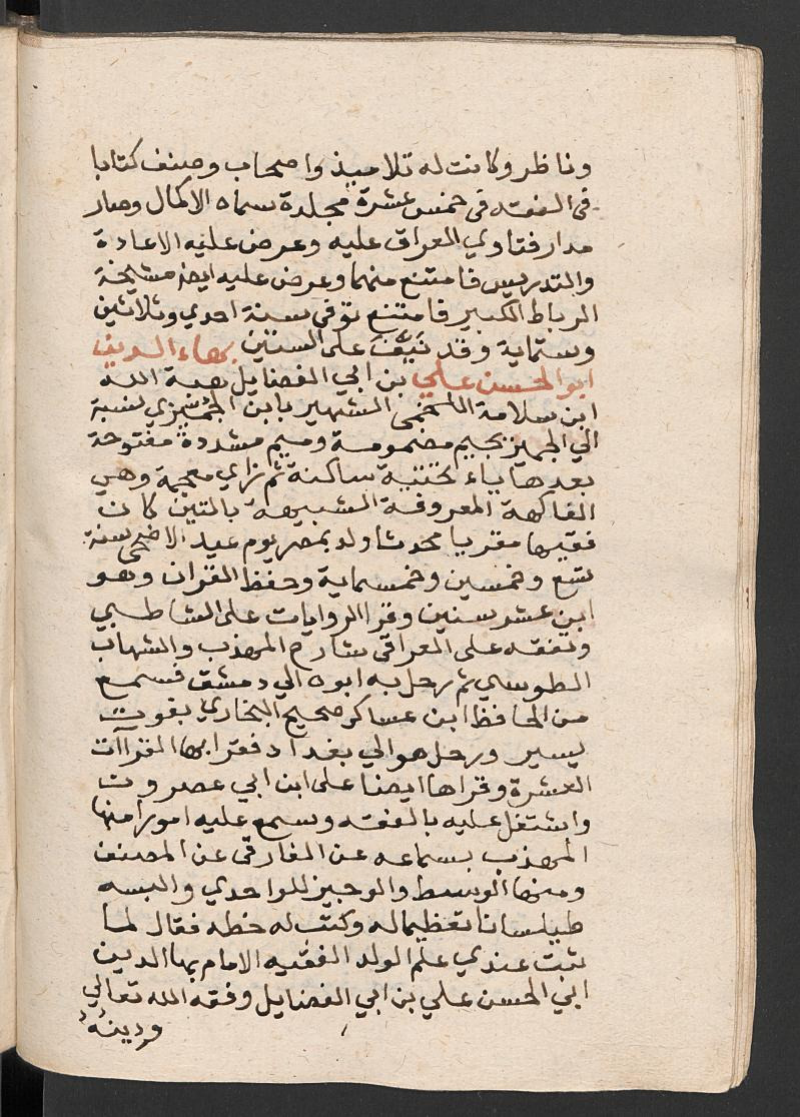 وناظر وكانت له تلاميذ واصحاب وصنف كتابا
في الفقه في خمس عشرة مجلدة سماه الاكمال وصار
مدار فتاوي العراق عليه وعرض عليه الاعادة
والتدريس فامتنع منهما وعرض عليه ايضا مشيخة
الرباط الكبير فامتنع توفى سنة احدي وثلاثين
وستماية وقد نيّف على الستين بهاء الدين
ابو الحسن علي بن ابي الفضايل هبة الله
ابن سلامة اللخمى الشهير بابن الجميزي نسبة
الي الجميز بجيم مضمومة وميم مشددة مفتوحة
بعدها ياء تحتية ساكنة ثم زاي معجمة وهي
الفاكهة المعروفة الشبيهة بالتين كان
فقيها مقريا محدثا ولد بمصر يوم عيد الاضحى سنة
تسع وخمسين وخمسماية وحفظ القران وهو
ابن عشر سنين وقرا الروايات على الشاطبي
وتفقه على العراقى شارح المهذب والشهاب
الطوسي ثم رحل به ابوه الي دمشق فسمع
من الحافظ ابن عساكر صحيح البخاري بفوت
يسير ورحل هو الي بغداد فقرا بها القراآت
العشرة وقراها ايضا على ابن ابي عصرون
واشتغل عليه بالفقه وسمع عليه امورا منها
المهذب بسماعه عن الفارقى عن المصنف
ومنها الوسيط والوجيز للواحدي والبسه
طيلسانا تعظيما له وكتب له خطه فقال لما
ثبت عندي علم الولد الفقيه الامام بها الدين
ابي الحسن علي بن ابي الفضايل وفقه الله تعالي
ودينه